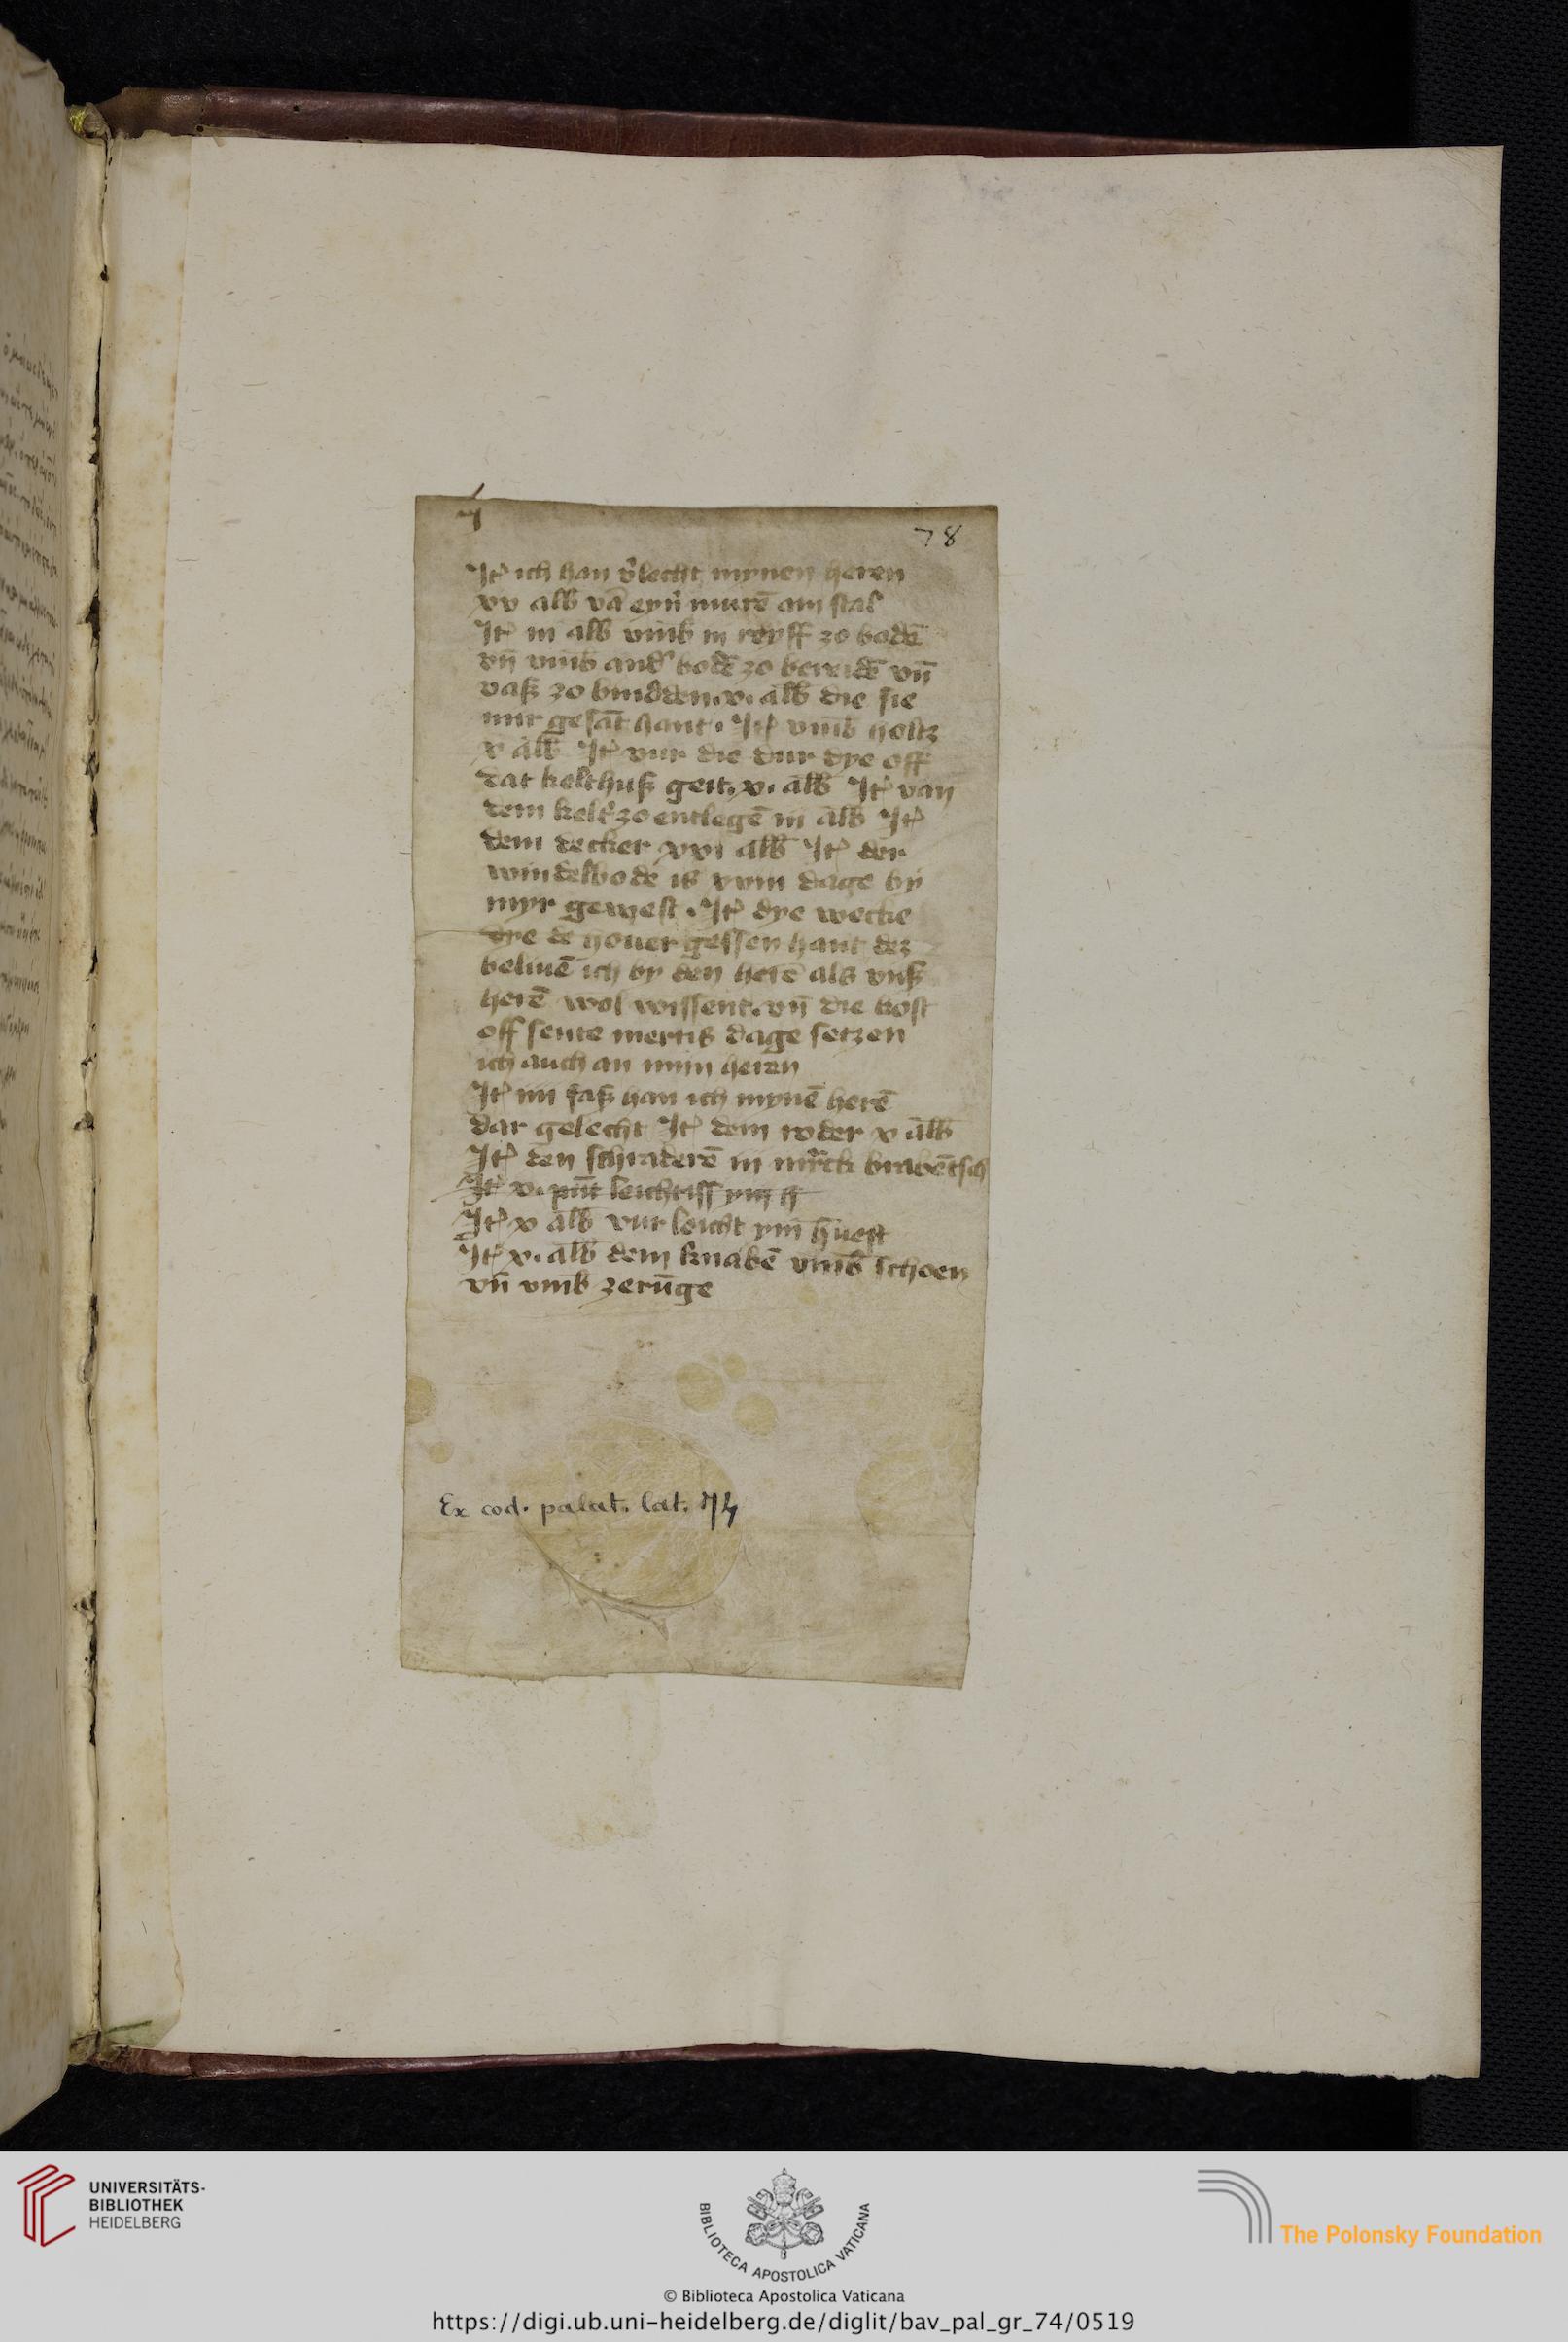 78
Itē ich han v̓lecht mynen heren
xv alb vā eynr̄ murē am stal
Itē iii alb vmb iii reyff zo bodē
vn̄ vmb and̓ bodē zo bereidē vn̄
vaß zo bindden .v. alb die sie
mir gesāt hant. Itē vmb holtz
v alb Itē vur die dur dye off
dat kelthuß geit .v. alb Itē van
dem kelt̓ zo entlegē iii alb Itē
dem decker xvi alb Itē der
windelbode is xviii dage by
myr gewest. Itē dye wecke
dye de houer gessen hant dez
beliuē ich by den herē als vnß
herē wol wissent. vn̄ die kost
off sente mertis dage setzen
ich auch an myn heren
Itē iiii faß han ich mynē herē
dar gelecht Itē dem roder v alb
Itē den schraderē iii mr̄ck brabētsch
Itē v. leichtiss
Itē v alb vur leicht ym
Itē v. alb dem knabē vmb schoen
vn̄ vmb zerūge
Ex cod. palat. lat. 74
UNIVERSITÄTS-
BIBLIOTHEK
HEIDELBERG
BIBLIOTECA APOSTOLICA VATICANA
The Polonsky Foundation
© Biblioteca Apostolica Vaticana
https://digi.ub.uni-heidelberg.de/diglit/bav_pal_gr_74/0519